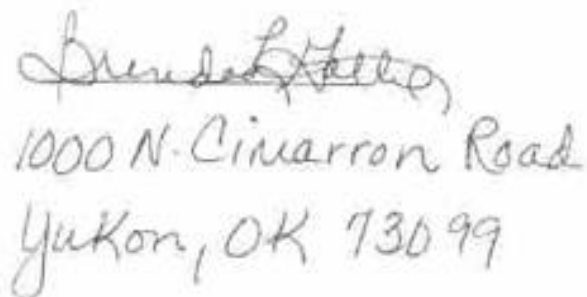 Brenda L
1000 N. Cimarron Road
Yukon, OK 73099